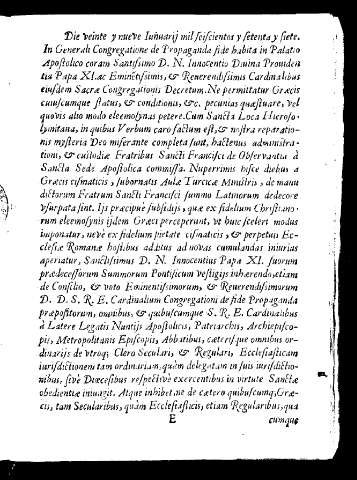 Die veinte y nueve Iunuarij mil seiscientos y setenta y siete.
In Generali Congregatione de Propaganda fide habita in Palatio
Apostolico coram Santissimo D. N. Innocentio Diuina Prouiden
tia Papa XI. ac Eminẽtissimis, & Reuerendissimis Cardinalibus
eiusdem Sacræ Congregationis Decretum. Ne permittatur Græcis
cuiuscumque status, & conditionis, &c. pecunias quæstuare, vel
quovis alio modo eleemosynas petere. Cum Sancta Loca Hieroso-
lymitana, in quibus Verbum caro factum est, & nostra reparatio-
nis mysteria Deo miserante completa sunt, hactenus administra-
tioni, & custodiæ Fratribus Sancti Francisci de Obseruantia à
Sancta Sede Apostolica commissa. Nuperrimis hisce diebus a
Græcis cismaticis, subornatis Aulæ Turcicæ Ministris, de manu
dictorum Fratrum Sancti Francisci summo Latinorum dedecore
vsurpata sint. Ijs præcipuè subsidijs, quæ ex fidelium Christiano-
rum eleemosynis ijdem Græci perceperunt, vt huic sceleri modus
imponatur, nevè ex fidelium pietate cismaticis, & perpetuis Ec-
clesiæ Romanæ hostibus aditus ad novas cumulandas iniurias
aperiatur, Sanctissimus D. N. Innocentius Papa XI. suorum
prædecessorum Summorum Pontificum vestigijs inhærendo, etiam
de Consilio, & voto Eminentissimorum, & Reuerendissimorum
D. D. S. R. E. Cardinalium Congregationi de fide Propaganda
præpositorum, omnibus, & quibuscumque S. R. E. Cardinalibus
à Latere Legatis Nuntijs Apostolicis, Patriarchis, Archiepisco-
pis, Metropolitanis Episcopis, Abbatibus, cæterisque omnibus or-
dinarijs de vtroq; Clero Seculari, & Regulari, Ecclesiasticam
iurisdictionem tam ordinariam, quàm delegatam in suis iurisdictio-
nibus, sivè Diœcesibus respectivè exercentibus in virtute Sanctæ
obedientiæ iniungit. Atque inhibet, ne de cætero quibuscumq; Græ-
cis, tam Secularibus, quàm Ecclesiasticis, etiam Regularibus, qua
E cumque